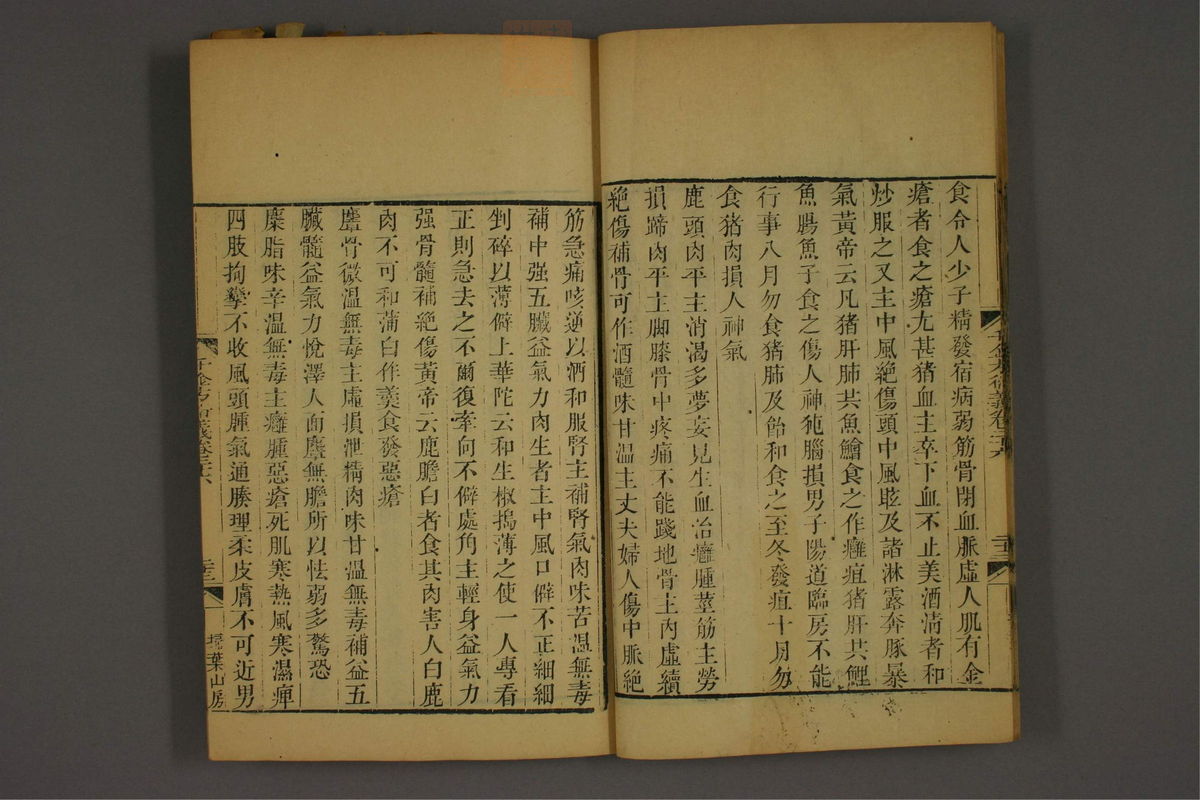 食令人少子精發宿病弱筋骨閉血脈虛人肌有金
瘡者食之瘡尤甚猪血主卒下血不止美酒清者和
炒服之又主中風絕傷頭中風眩及諸淋露奔豚暴
氣黃帝云凡猪肝肺共魚鱠食之作癰疽猪肝共鯉
魚腸魚子食之傷人神㹠腦損男子陽道臨房不能
行事八月勿食猪肺及飴和食之至冬發疽十月勿
食猪肉損人神氣
鹿頭肉平主消渴多夢妄見生血治癰腫莖筋主勞
損蹄肉平主脚膝骨中疼痛不能踐地骨主內虛續
絕傷補骨可作酒髓味甘温主丈夫婦人傷中脈絕
千金方衍義卷二十六
二十三
筋急痛咳逆以酒和服腎主補腎氣肉味苦温無毒
補中强五臟益氣力肉生者主中風口僻不正細細
剉碎以薄僻上華陀云和生椒搗薄之使一人專看
正則急去之不爾復牽向不僻處角主輕身益氣力
强骨髓補絕傷黃帝云鹿膽白者食其肉害人白鹿
肉不可和蒲白作羹食發惡瘡
麞骨微溫無毒主虛損泄精肉味甘溫無毒補益五
臟髓益氣力悅澤人面麞無膽所以怯弱多驚恐
麋脂味辛溫無毒主癰腫惡瘡死肌寒熱風寒濕痺
四肢拘攣不收風頭腫氣通腠理柔皮膚不可近男
千金方衍義卷二十六
二十三
掃葉山房